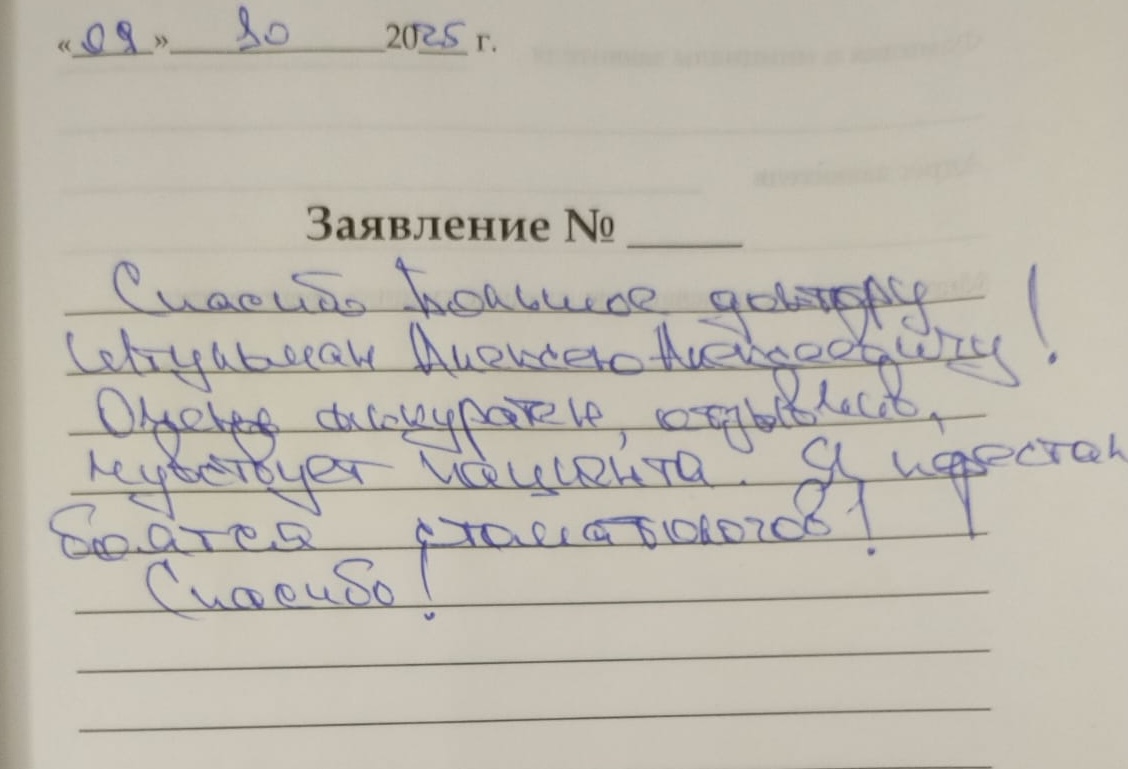 «09» 10 2025 г.
Заявление №
Спасибо большое доктору
Алексею Алексеевичу!
Очень аккуратен, отзывчив,
чувствует пациента. Я перестан
боятся стоматологов!
Спасибо!